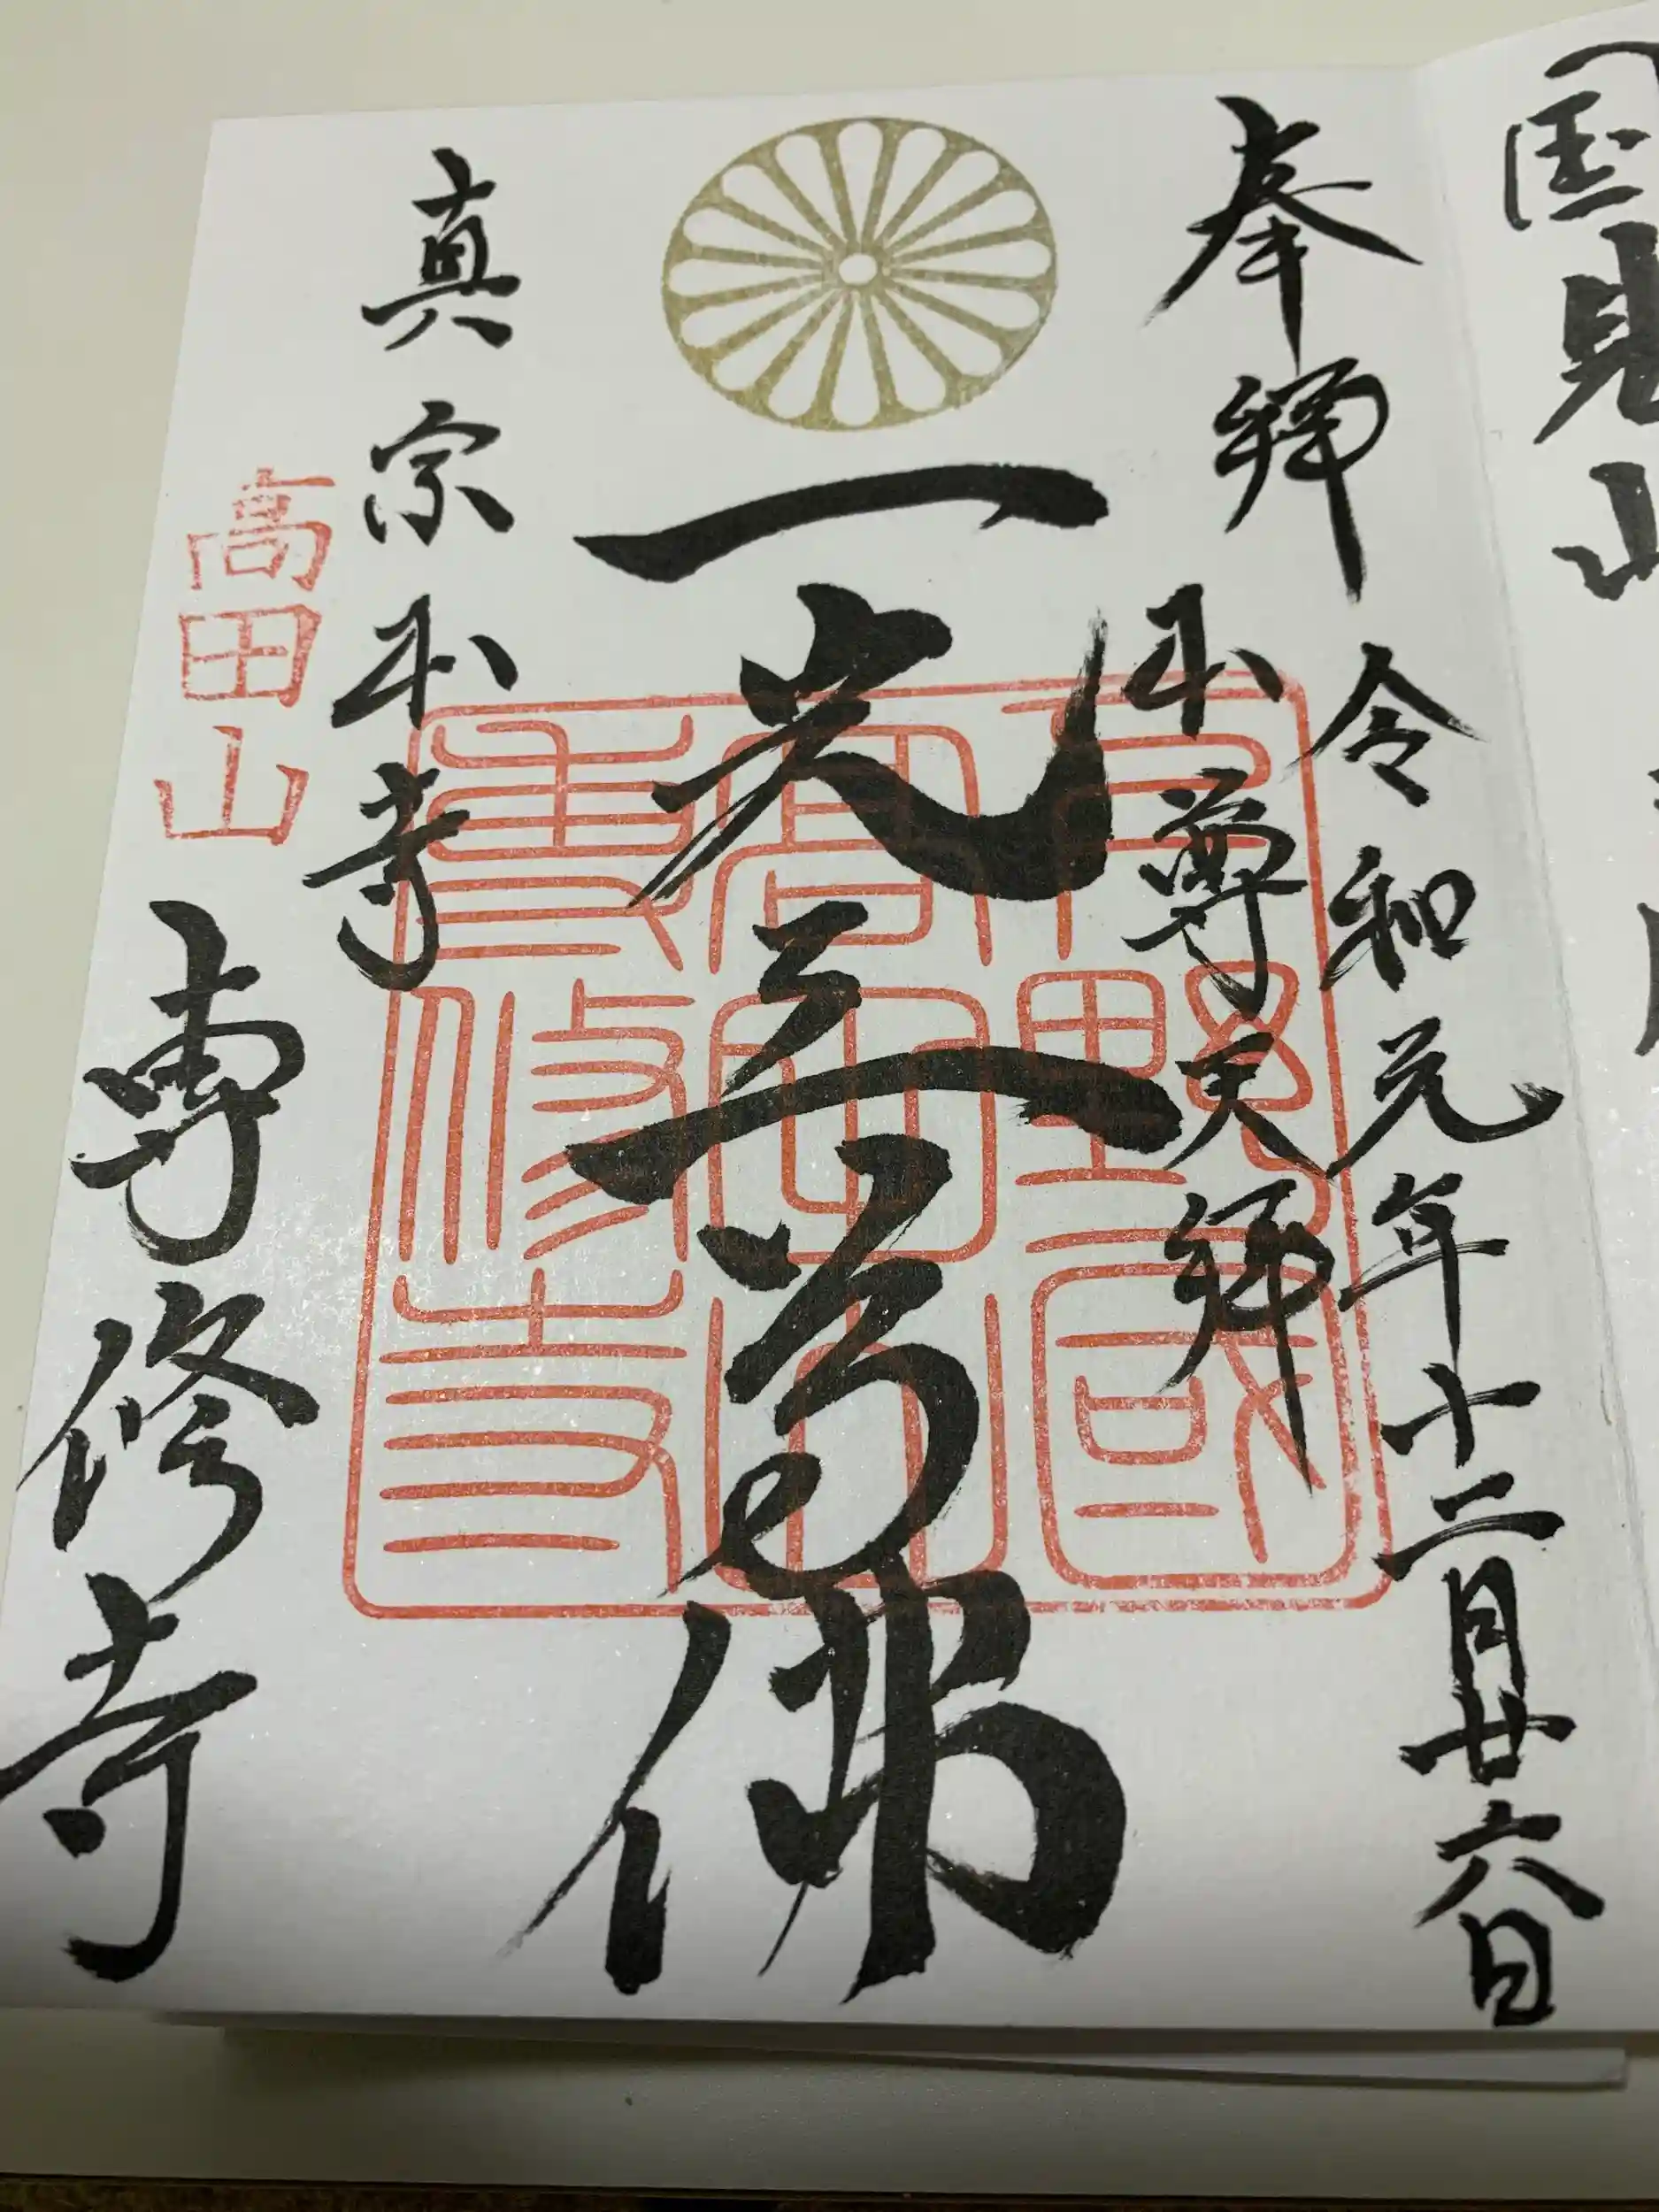 国見山
奉拝
令和元年十二月廿六日
本尊天拝
一光三尊佛
下野國
高田山
専修寺
真宗本寺
専修寺
高田山